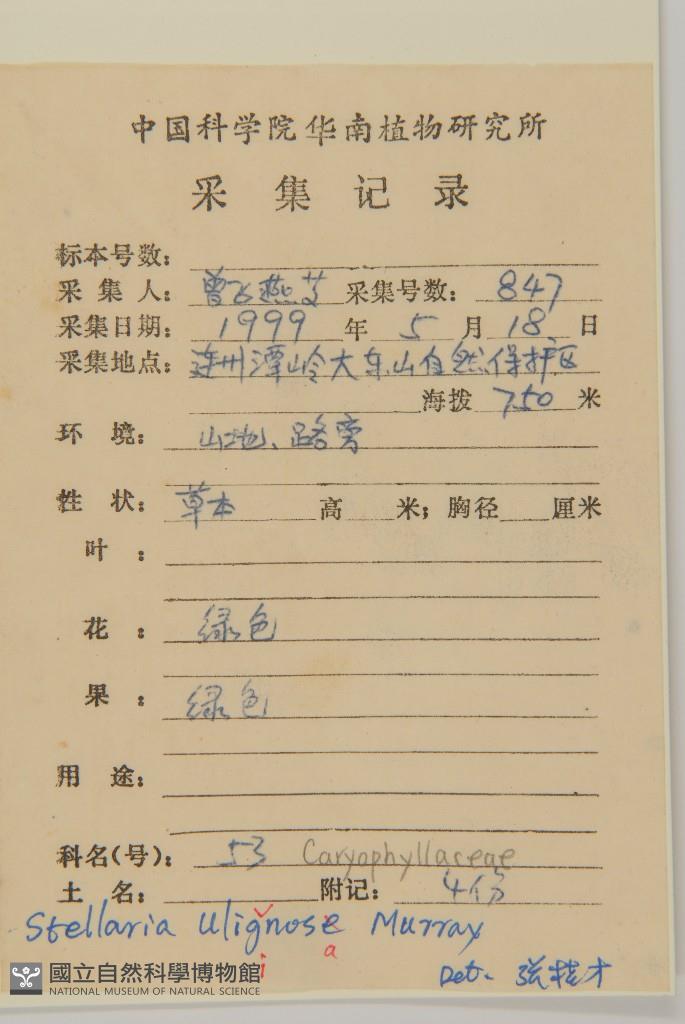 中国科学院华南植物研究所
采集记录
标本号数:
采集人: 曾飞燕等 采集号数: 847
采集日期: 1999 年 5 月 18 日
采集地点: 连州潭岭大东山自然保护区
海拨 750 米
环境: 山地、路旁
性状: 草本 高 米; 胸径 厘米
叶:
花: 绿色
果: 绿色
用途:
科名(号): 53 Caryophyllaceae
土名: 附记: 4份
Stellaria ulignose Murray
i a
Det. 张桂才
國立自然科學博物館
NATIONAL MUSEUM OF NATURAL SCIENCE